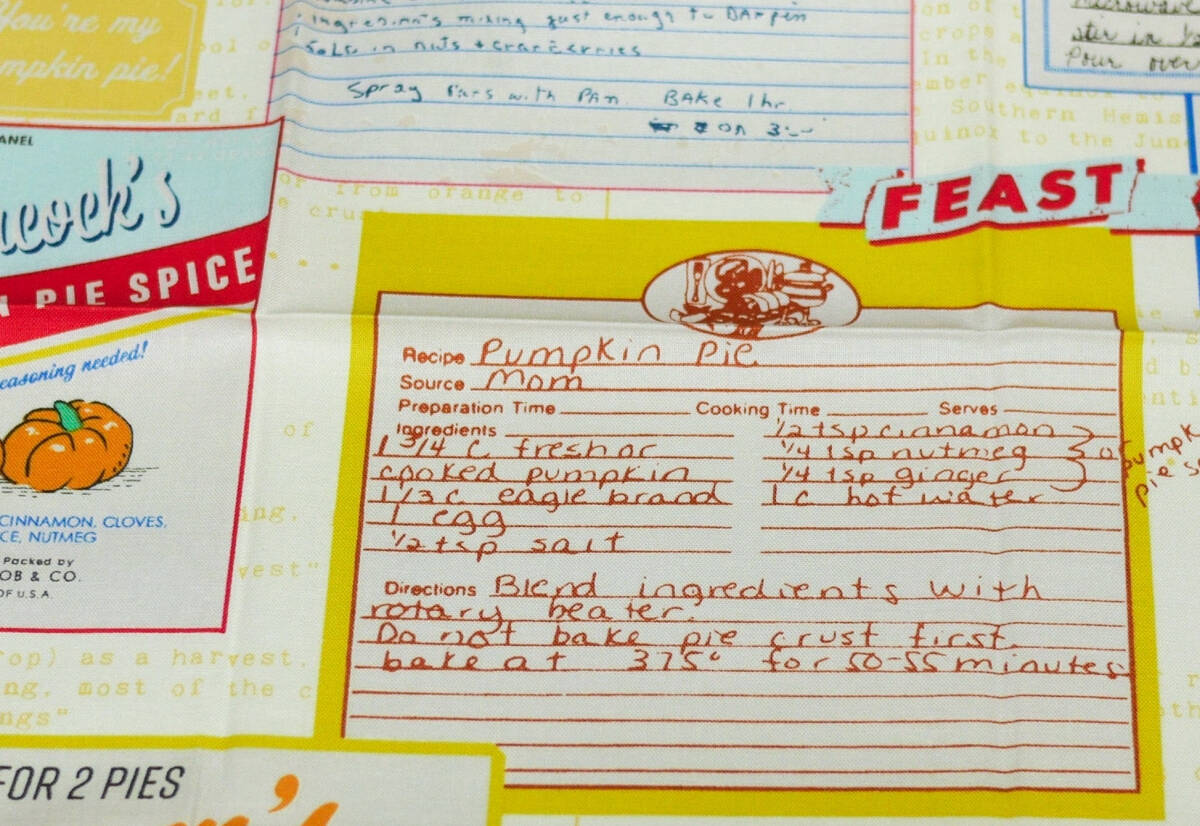 You're my
mpkin pie!
Ingredients mixing just enough to DAmpen
in nuts + cranberries
Spray PAns with PAm. BAKE 1 hr.
on 3
stir in
Pour over
on of
crops a
in the
Southern Hemis
quinox to the Jun
ANEL
cock's
PIE SPICE
easoning needed!
CINNAMON, CLOVES,
CE, NUTMEG
Packed by
OB & CO.
OF U.S.A.
or from orange to
e crust
of
ing.
vest"
FEAST
Recipe Pumpkin Pie
Source Mom
Preparation Time Cooking Time Serves
Ingredients
1 3/4 c fresh or
cooked pumpkin
1 1/3 c eagle brand
1 egg
1/2 tsp salt
1/2 tsp cinnamon
1/4 tsp nutmeg
1/4 tsp ginger
1 c hot water
or
pumpk
pie s
Directions Blend ingredients with
rotary beater.
Do not bake pie crust first.
bake at 375° for 50-55 minutes
rop) as a harvest.
ng, most of the c
ngs"
FOR 2 PIES